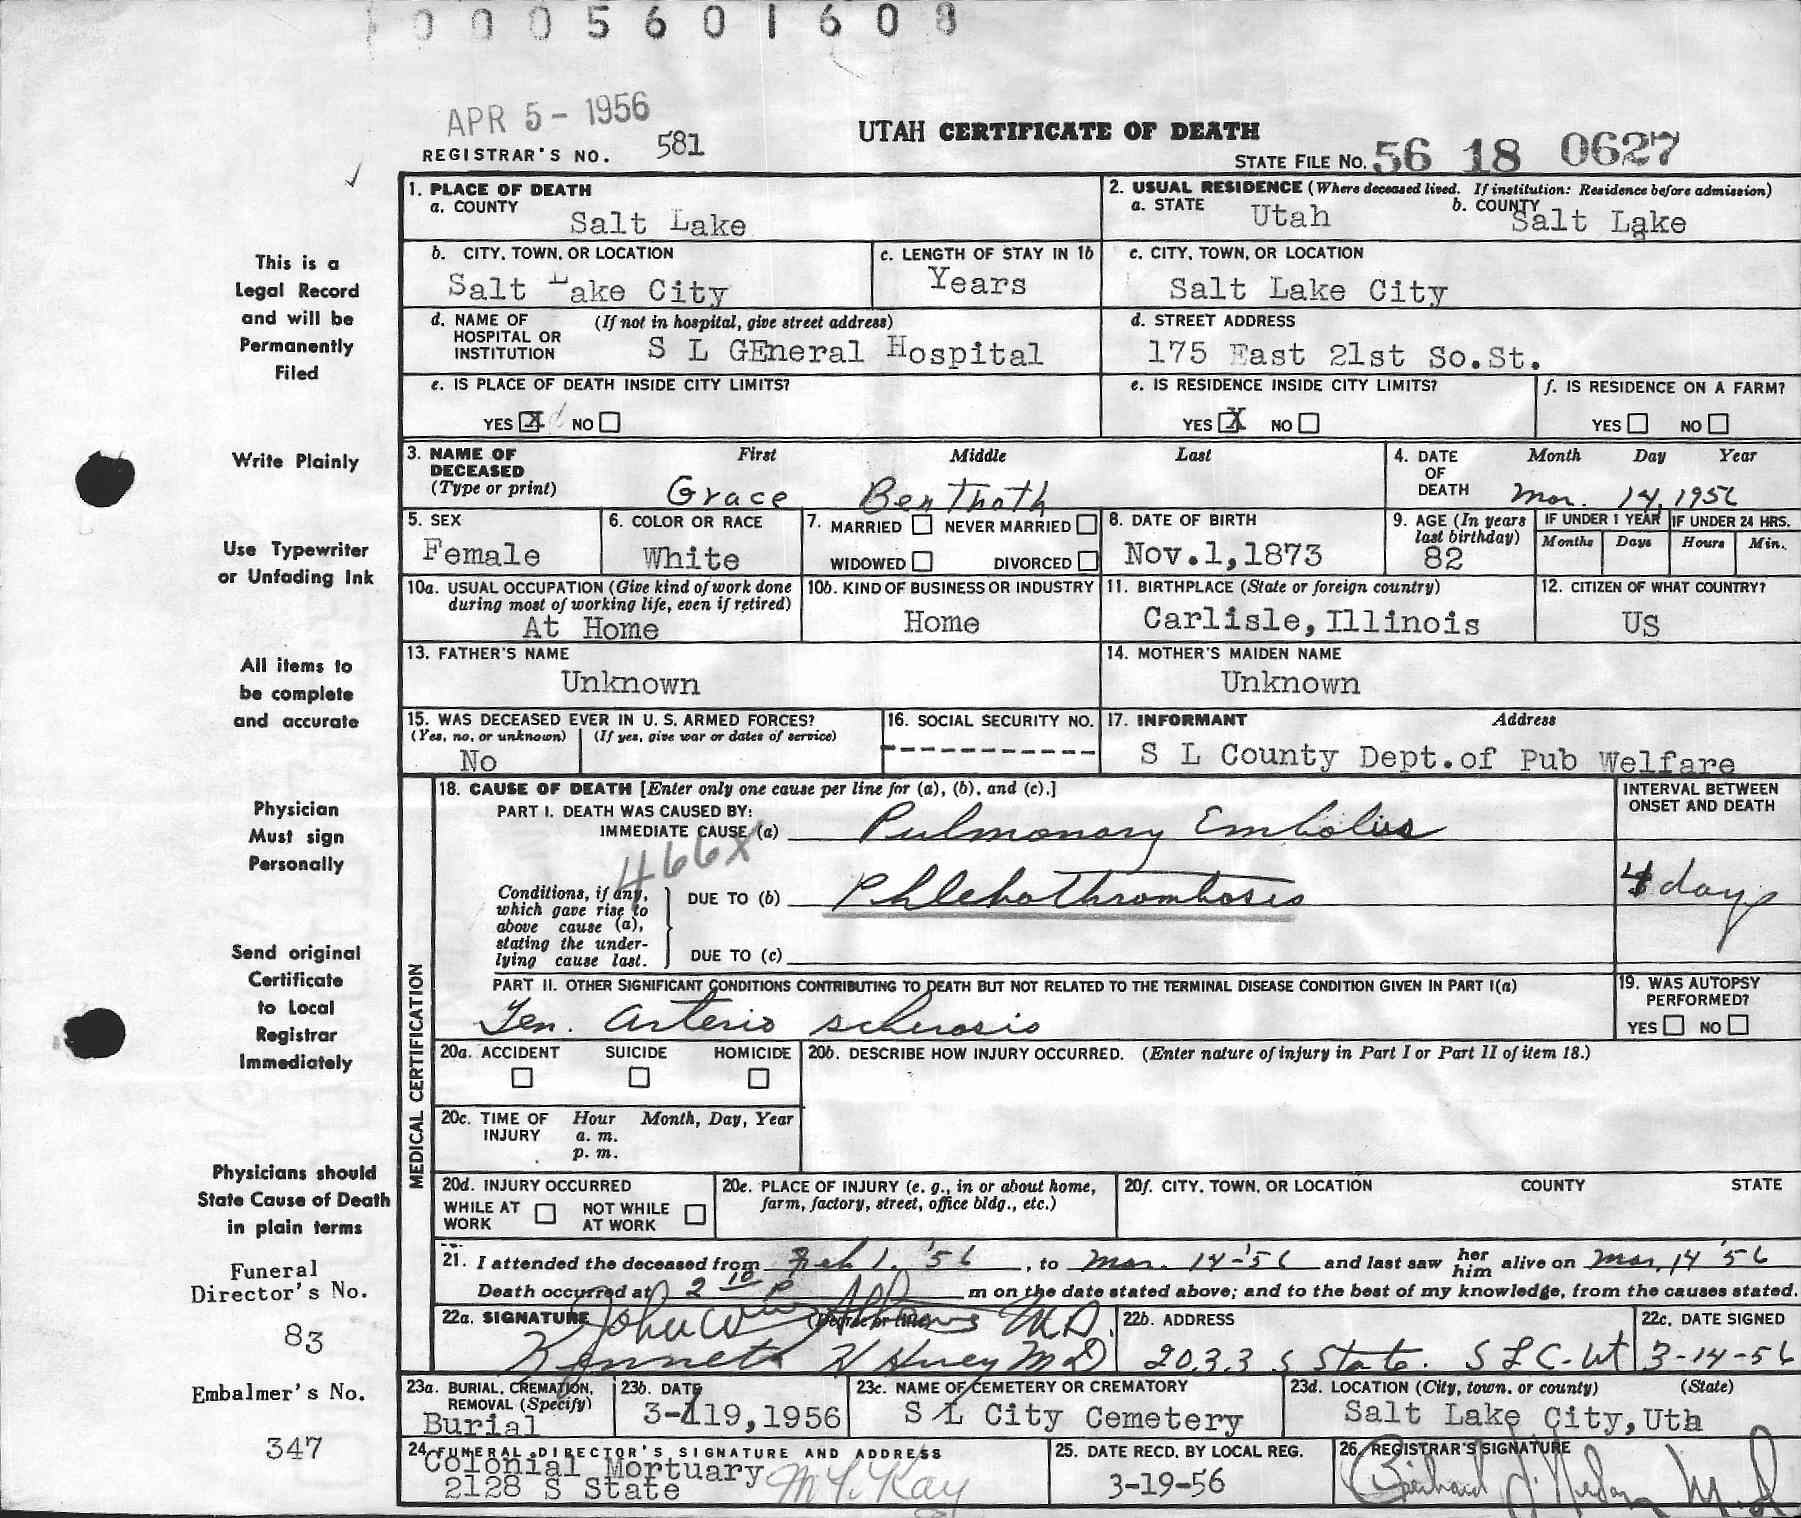 0005601608
APR 5 - 1956
REGISTRAR'S NO. 581
UTAH CERTIFICATE OF DEATH
STATE FILE NO. 56 18 0627
This is a
Legal Record
and will be
Permanently
Filed
Write Plainly
Use Typewriter
or Unfading Ink
All items to
be complete
and accurate
Physician
Must sign
Personally
Send original
Certificate
to Local
Registrar
Immediately
Physicians should
State Cause of Death
in plain terms
Funeral
Director's No.
83
Embalmer's No.
347
1. PLACE OF DEATH
a. COUNTY
Salt Lake
2. USUAL RESIDENCE (Where deceased lived. If institution: Residence before admission)
a. STATE Utah b. COUNTY Salt Lake
b. CITY, TOWN, OR LOCATION
Salt Lake City
c. LENGTH OF STAY IN 1b
Years
c. CITY, TOWN, OR LOCATION
Salt Lake City
d. NAME OF HOSPITAL OR INSTITUTION (If not in hospital, give street address)
S L GEneral Hospital
d. STREET ADDRESS
175 East 21st So.St.
e. IS PLACE OF DEATH INSIDE CITY LIMITS?
YES X NO
e. IS RESIDENCE INSIDE CITY LIMITS?
YES X NO
f. IS RESIDENCE ON A FARM?
YES NO
3. NAME OF DECEASED (Type or print)
First Middle Last
Grace Ben Thoth
4. DATE OF DEATH Month Day Year
Mar. 14, 1956
5. SEX
Female
6. COLOR OR RACE
White
7. MARRIED NEVER MARRIED
WIDOWED DIVORCED
8. DATE OF BIRTH
Nov.1,1873
9. AGE (In years last birthday)
82
IF UNDER 1 YEAR IF UNDER 24 HRS.
Months Days Hours Min.
10a. USUAL OCCUPATION (Give kind of work done during most of working life, even if retired)
At Home
10b. KIND OF BUSINESS OR INDUSTRY
Home
11. BIRTHPLACE (State or foreign country)
Carlisle, Illinois
12. CITIZEN OF WHAT COUNTRY?
US
13. FATHER'S NAME
Unknown
14. MOTHER'S MAIDEN NAME
Unknown
15. WAS DECEASED EVER IN U. S. ARMED FORCES?
(Yes, no, or unknown) (If yes, give war or dates of service)
No
16. SOCIAL SECURITY NO.
------------
17. INFORMANT Address
S L County Dept.of Pub Welfare
MEDICAL CERTIFICATION
18. CAUSE OF DEATH [Enter only one cause per line for (a), (b), and (c).]
INTERVAL BETWEEN ONSET AND DEATH
PART I. DEATH WAS CAUSED BY:
IMMEDIATE CAUSE (a) Pulmonary Embolus
466X
Conditions, if any, which gave rise to above cause (a), stating the underlying cause last.
DUE TO (b) Phlebothrombosis
4 days
DUE TO (c)
PART II. OTHER SIGNIFICANT CONDITIONS CONTRIBUTING TO DEATH BUT NOT RELATED TO THE TERMINAL DISEASE CONDITION GIVEN IN PART I(a)
Gen. Arterio sclerosis
19. WAS AUTOPSY PERFORMED?
YES NO
20a. ACCIDENT SUICIDE HOMICIDE
20b. DESCRIBE HOW INJURY OCCURRED. (Enter nature of injury in Part I or Part II of item 18.)
20c. TIME OF INJURY Hour Month, Day, Year
a. m.
p. m.
20d. INJURY OCCURRED
WHILE AT WORK NOT WHILE AT WORK
20e. PLACE OF INJURY (e. g., in or about home, farm, factory, street, office bldg., etc.)
20f. CITY, TOWN, OR LOCATION COUNTY STATE
21. I attended the deceased from Feb 1. '56, to Mar. 14-'56 and last saw her him alive on Mar. 14 '56
Death occurred at 2 10 P m on the date stated above; and to the best of my knowledge, from the causes stated.
22a. SIGNATURE (Degree or title)
John M.D.
Kenneth MD
22b. ADDRESS
2033 S State. S L C-Ut
22c. DATE SIGNED
3-14-56
23a. BURIAL, CREMATION, REMOVAL (Specify)
Burial
23b. DATE
3-19,1956
23c. NAME OF CEMETERY OR CREMATORY
S L City Cemetery
23d. LOCATION (City, town, or county) (State)
Salt Lake City, Uta
24. FUNERAL DIRECTOR'S SIGNATURE AND ADDRESS
Colonial Mortuary
2128 S State
25. DATE RECD. BY LOCAL REG.
3-19-56
26. REGISTRAR'S SIGNATURE